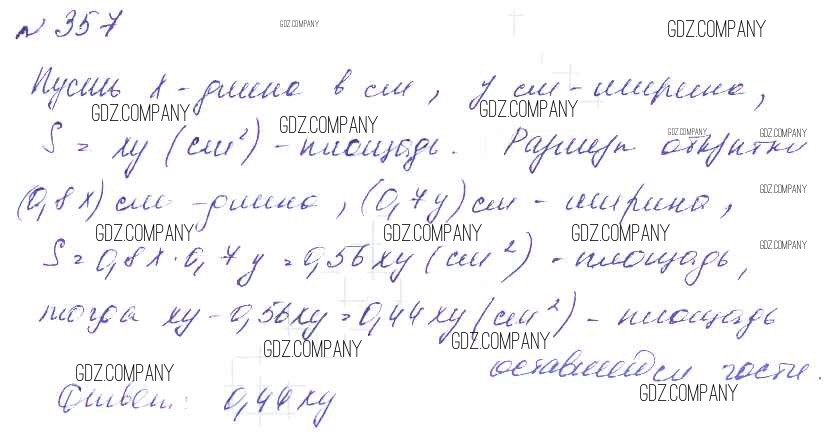 № 357
GDZ.COMPANY
GDZ.COMPANY
Пусть x - длина в см, y см - ширина,
GDZ.COMPANY
GDZ.COMPANY
GDZ.COMPANY
S = xy (см²) - площадь. Размеры открытки
GDZ.COMPANY
GDZ.COMPANY
(0,8x) см - длина, (0,7y) см - ширина,
GDZ.COMPANY
GDZ.COMPANY
GDZ.COMPANY
GDZ.COMPANY
S = 0,8x · 0,7y = 0,56xy (см²) - площадь,
GDZ.COMPANY
тогда xy - 0,56xy = 0,44xy (см²) - площадь
GDZ.COMPANY
GDZ.COMPANY
оставшейся части.
GDZ.COMPANY
GDZ.COMPANY
Ответ: 0,44xy